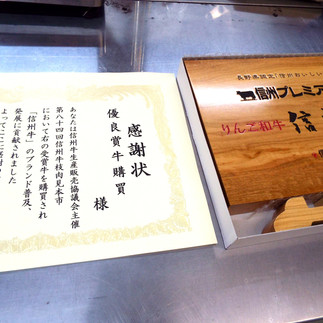 感謝状
優良賞牛購買 様
あなたは信州牛生産販売協議会主催
第八十四回信州牛枝肉見本市
において右の受賞牛を購買され
「信州牛」のブランド普及、
発展に貢献されました
よってここに
長野県認定「信州おいしい
信州プレミア
りんご和牛 信